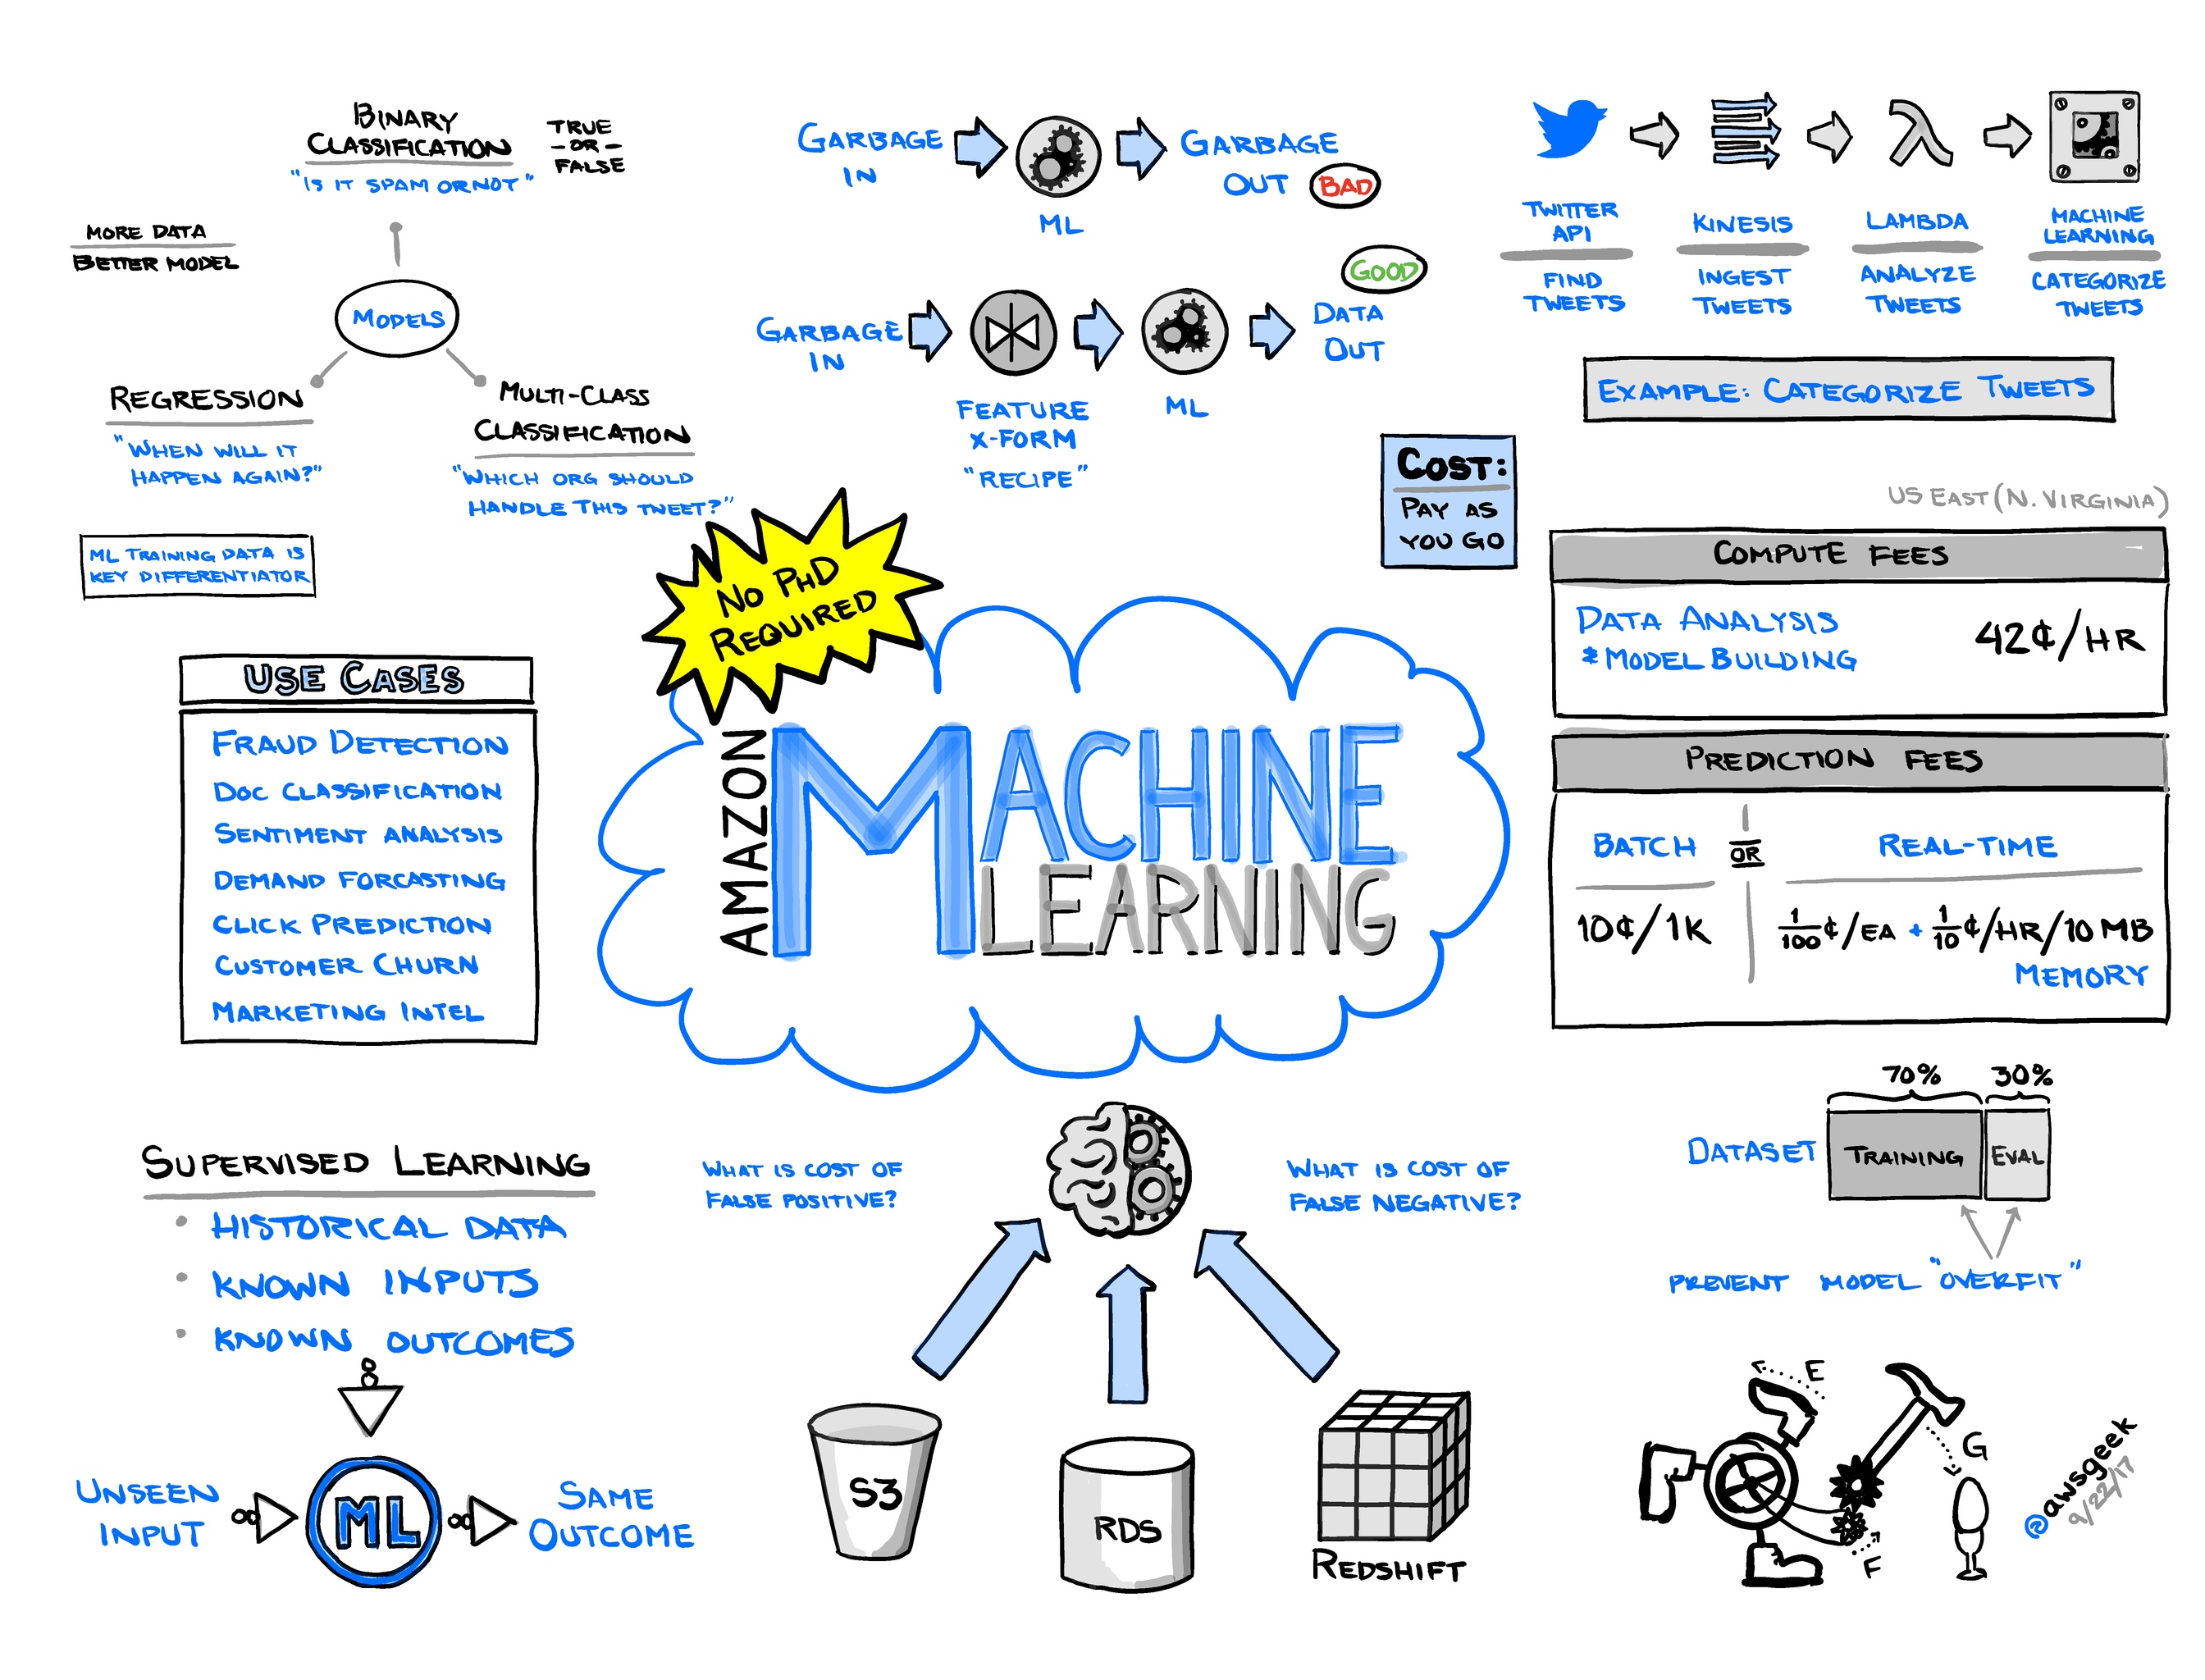 BINARY
CLASSIFICATION
"IS IT SPAM OR NOT"
TRUE
-OR-
FALSE
MORE DATA
BETTER MODEL
MODELS
REGRESSION
"WHEN WILL IT
HAPPEN AGAIN?"
MULTI-CLASS
CLASSIFICATION
"WHICH ORG SHOULD
HANDLE THIS TWEET?"
ML TRAINING DATA IS
KEY DIFFERENTIATOR
GARBAGE
IN
ML
GARBAGE
OUT
BAD
GARBAGE
IN
FEATURE
X-FORM
"RECIPE"
ML
GOOD
DATA
OUT
TWITTER
API
FIND
TWEETS
KINESIS
INGEST
TWEETS
LAMBDA
ANALYZE
TWEETS
MACHINE
LEARNING
CATEGORIZE
TWEETS
EXAMPLE: CATEGORIZE TWEETS
COST:
PAY AS
YOU GO
US EAST (N. VIRGINIA)
COMPUTE FEES
DATA ANALYSIS
& MODEL BUILDING
42¢/HR
PREDICTION FEES
BATCH
OR
REAL-TIME
10¢/1K
1/100¢/EA + 1/10¢/HR/10 MB
MEMORY
NO PHD
REQUIRED
AMAZON
MACHINE
LEARNING
USE CASES
FRAUD DETECTION
DOC CLASSIFICATION
SENTIMENT ANALYSIS
DEMAND FORCASTING
CLICK PREDICTION
CUSTOMER CHURN
MARKETING INTEL
SUPERVISED LEARNING
• HISTORICAL DATA
• KNOWN INPUTS
• KNOWN OUTCOMES
UNSEEN
INPUT
ML
SAME
OUTCOME
WHAT IS COST OF
FALSE POSITIVE?
WHAT IS COST OF
FALSE NEGATIVE?
S3
RDS
REDSHIFT
70% 30%
DATASET
TRAINING
EVAL
PREVENT MODEL "OVERFIT"
E
G
F
@awsgeek
9/22/17